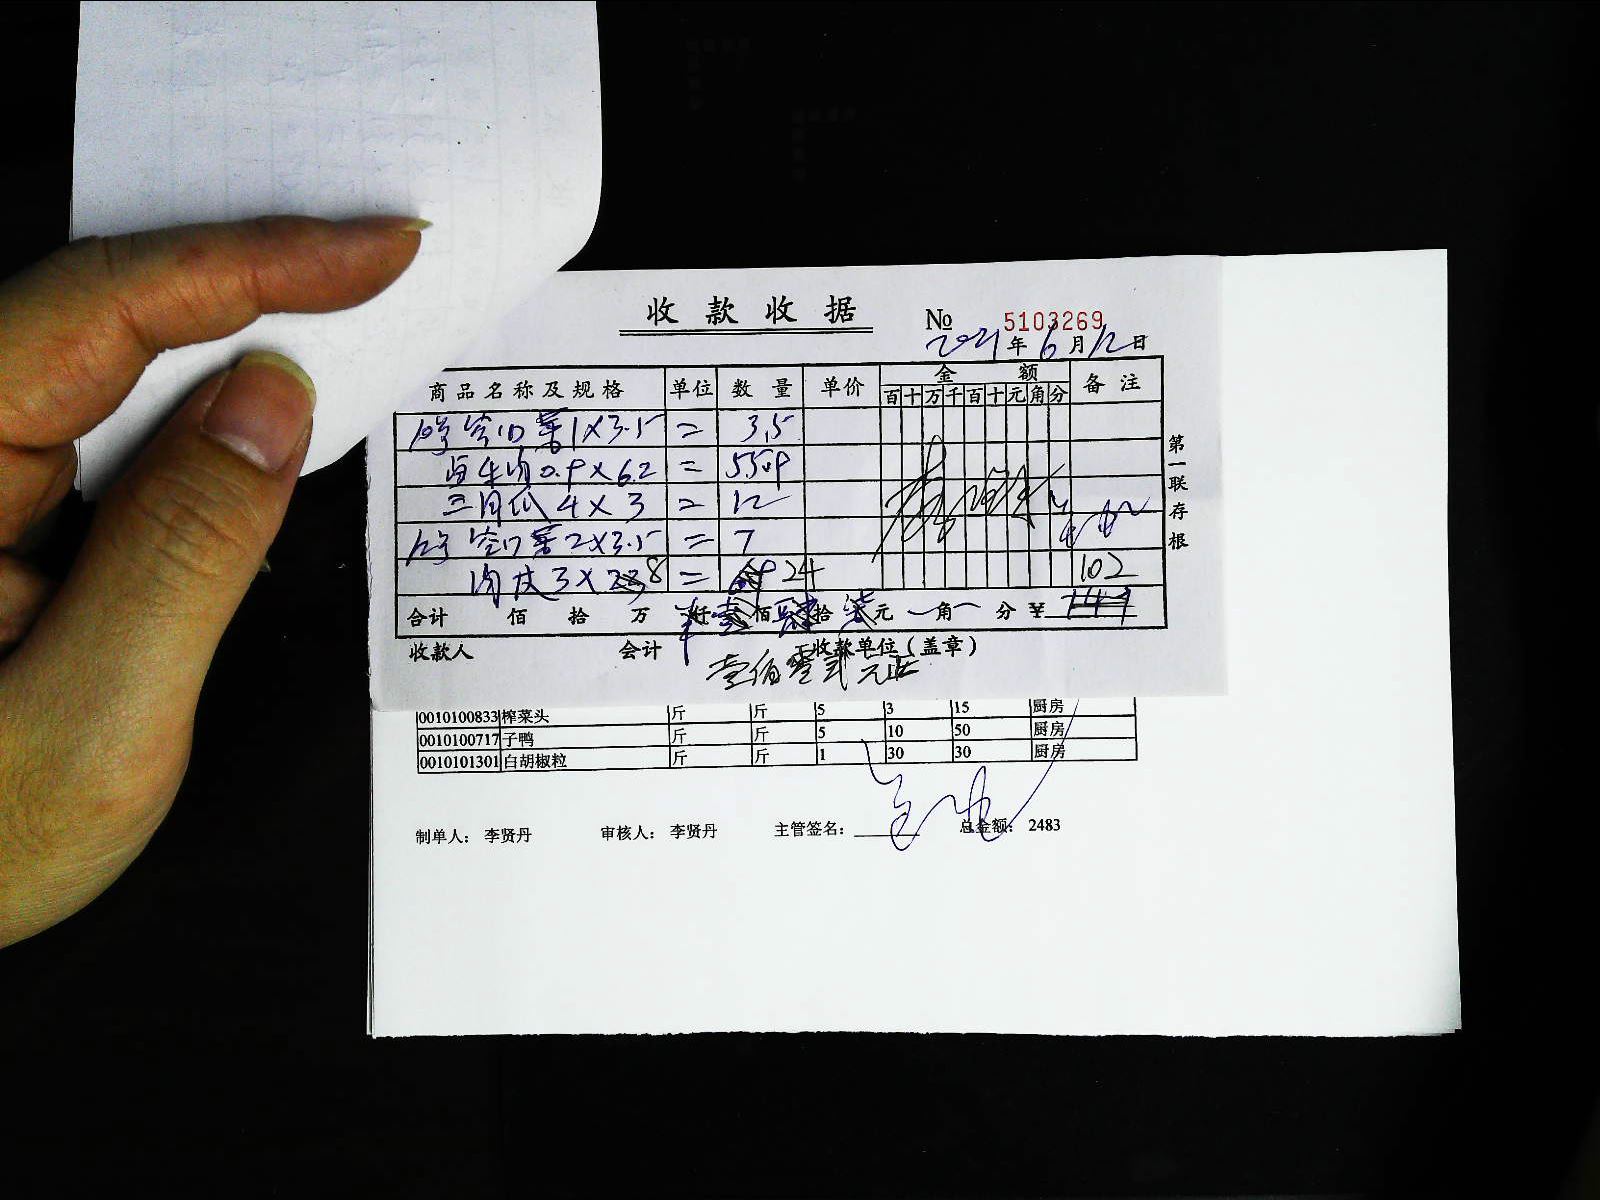 收款收据
№ 5103269
2021年6月12日
商品名称及规格 单位 数量 单价 金额 备注
百十万千百十元角分
空心菜1×3.5 = 3.5
牛肉0.9×62 = 55.9
三月瓜4×3 = 12
空心菜2×3.5 = 7
3×8 = 24
102
合计 佰 拾 万 仟 佰 拾 元 角 分 ¥
收款人 会计 收款单位(盖章)
壹佰零贰元正
第一联存根
0010100833 榨菜头 斤 斤 5 3 15 厨房
0010100717 子鸭 斤 斤 5 10 50 厨房
0010101301 白胡椒粒 斤 斤 1 30 30 厨房
制单人: 李贤丹 审核人: 李贤丹 主管签名: 总金额: 2483